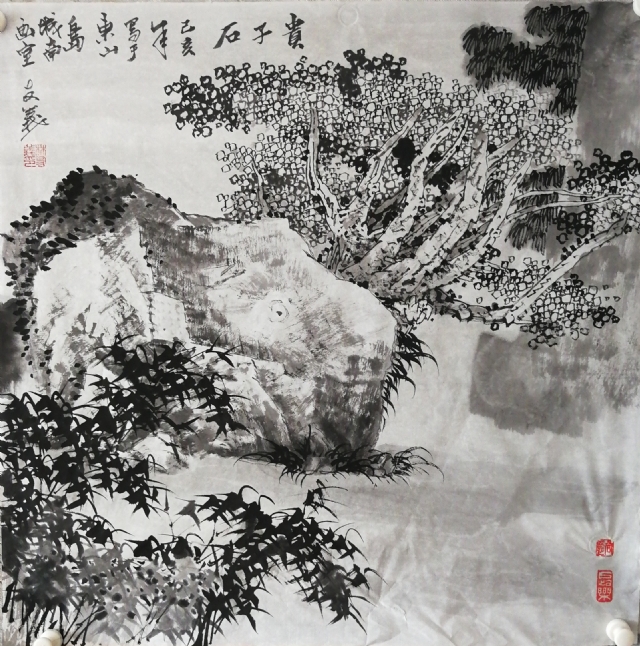 貴
子
石
己亥
年
寫于
東山
島
城南
画室
文義